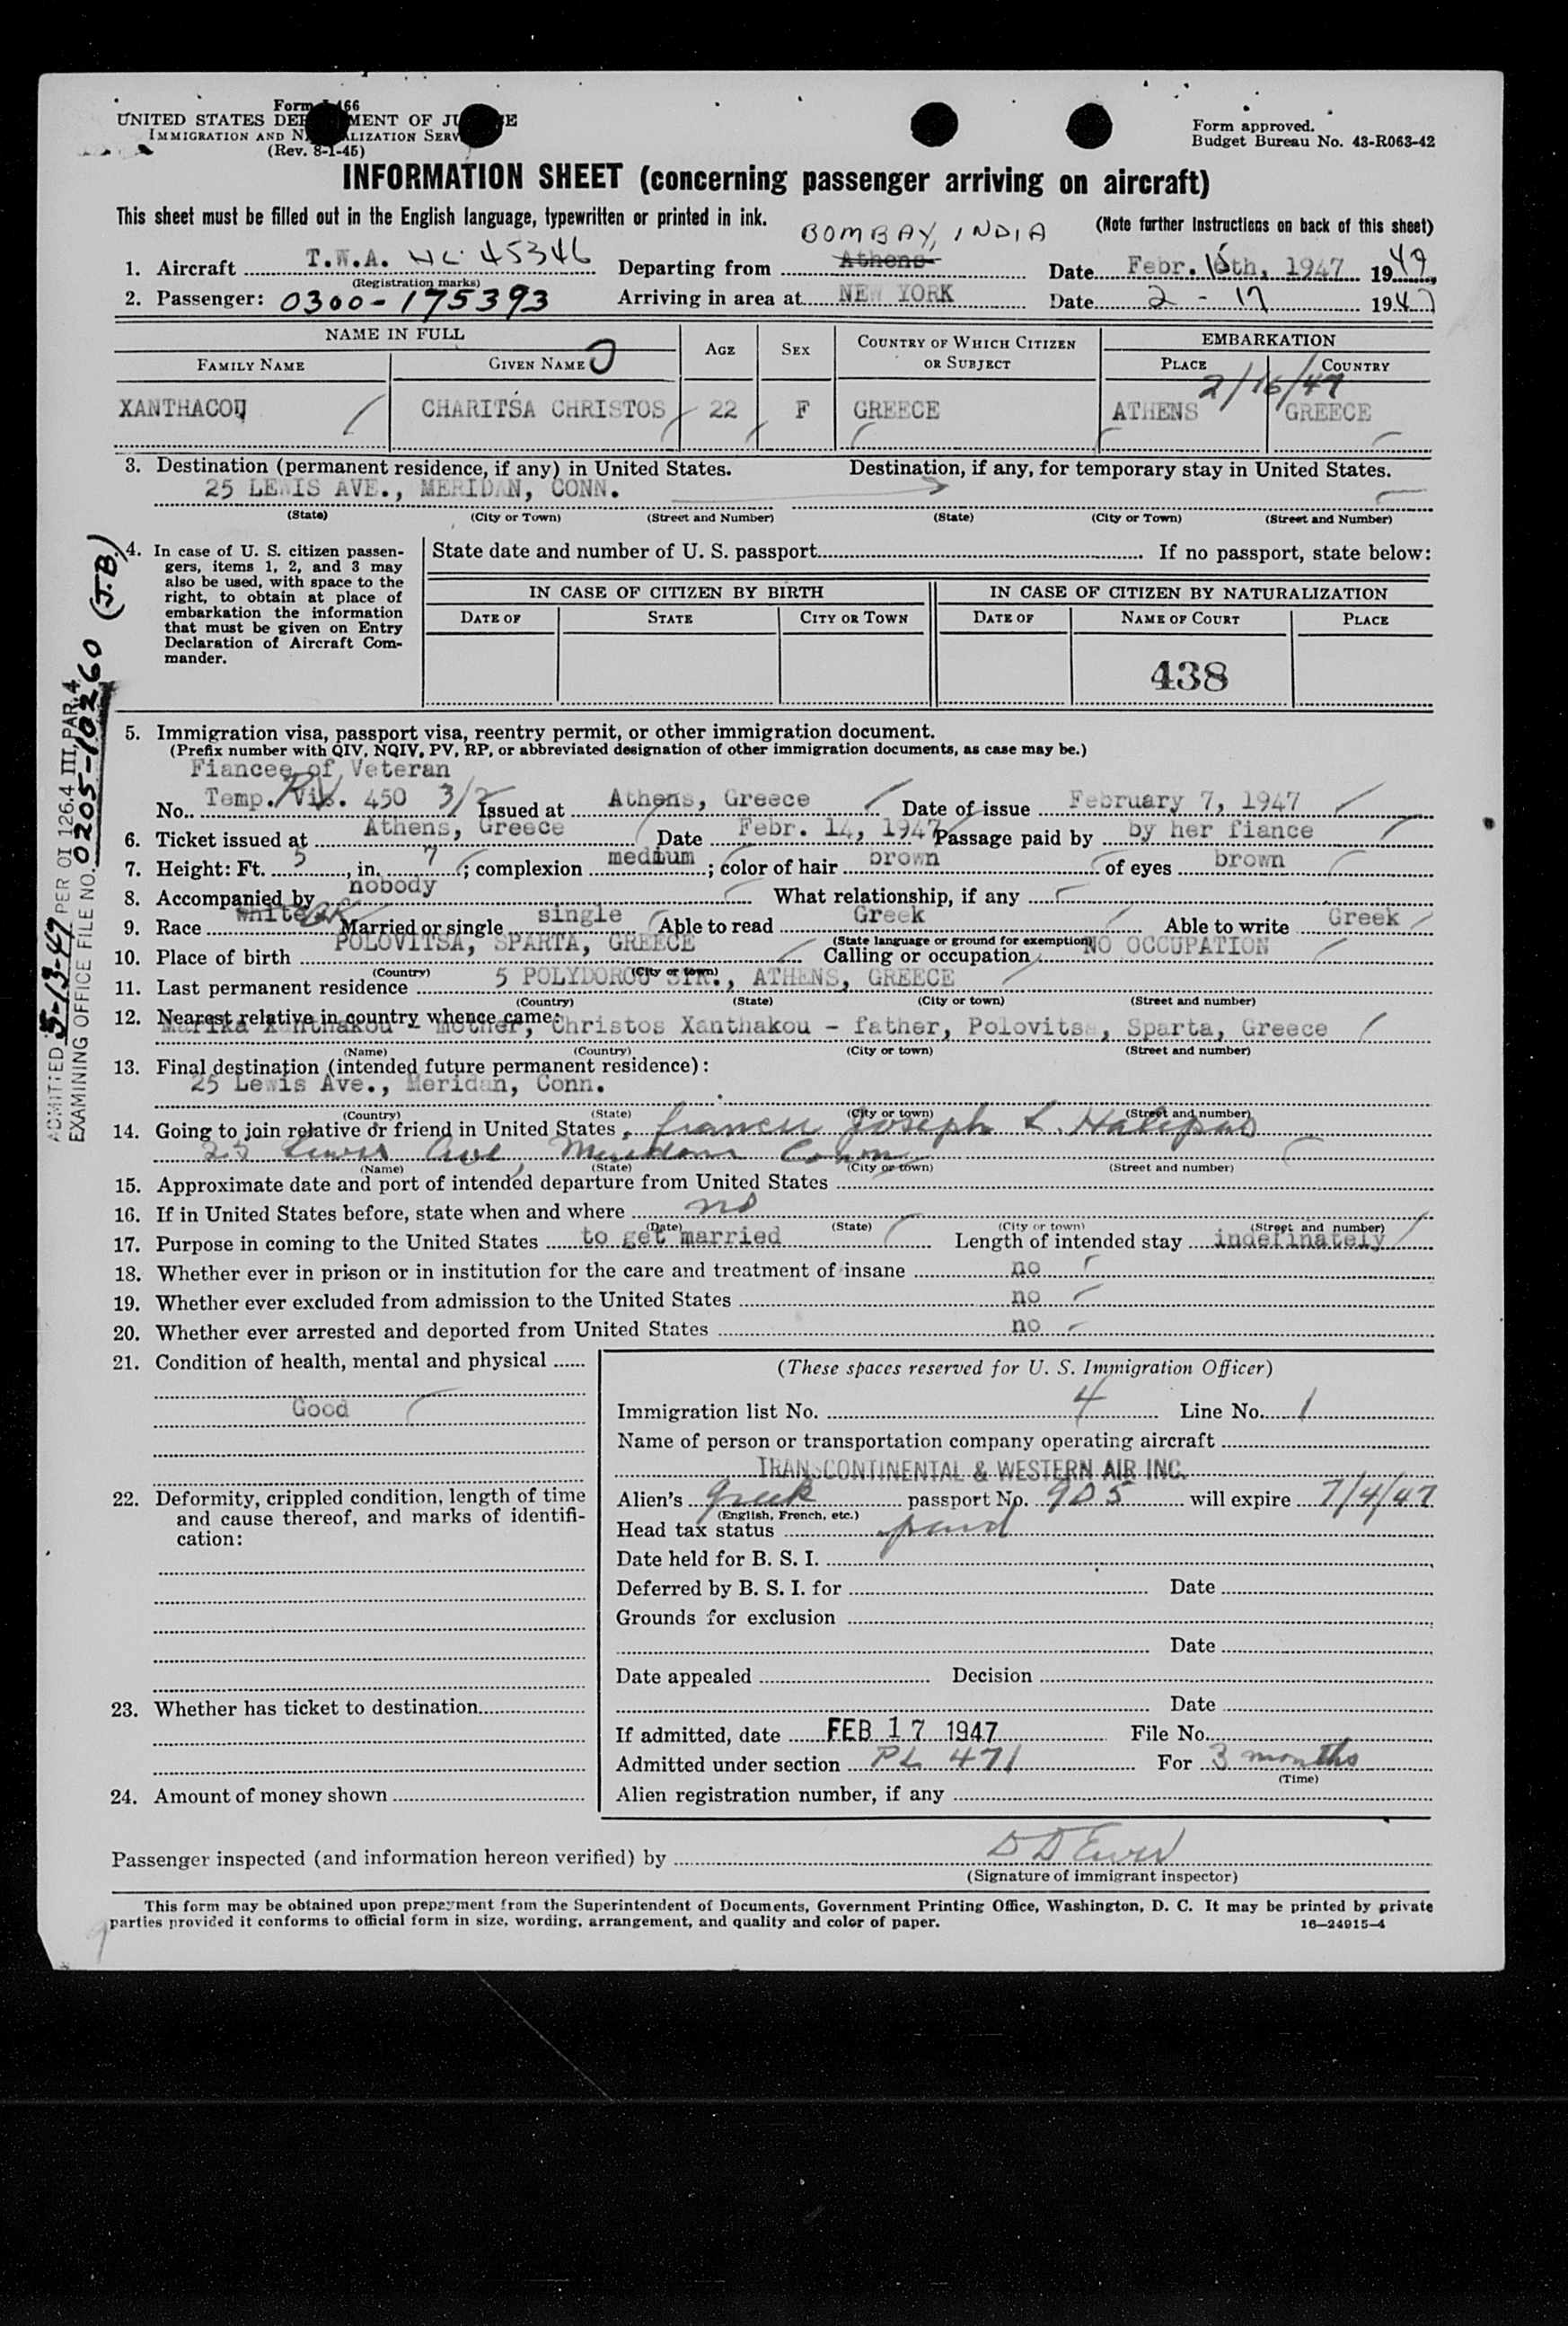 Form I-466
UNITED STATES DEPARTMENT OF JUSTICE
IMMIGRATION AND NATURALIZATION SERVICE
(Rev. 8-1-45)
Form approved.
Budget Bureau No. 43-R063-42
INFORMATION SHEET (concerning passenger arriving on aircraft)
This sheet must be filled out in the English language, typewritten or printed in ink.
(Note further instructions on back of this sheet)
BOMBAY, INDIA
1. Aircraft T.W.A. NC 45346 Departing from Athens Date Febr. 16th, 1947 1947
(Registration marks)
2. Passenger: 0300-175393 Arriving in area at NEW YORK Date 2-17 1947
NAME IN FULL AGE SEX COUNTRY OF WHICH CITIZEN OR SUBJECT EMBARKATION
FAMILY NAME GIVEN NAME PLACE COUNTRY
2/16/47
XANTHACOU CHARITSA CHRISTOS 22 F GREECE ATHENS GREECE
3. Destination (permanent residence, if any) in United States. Destination, if any, for temporary stay in United States.
25 LEWIS AVE., MERIDAN, CONN.
(State) (City or Town) (Street and Number) (State) (City or Town) (Street and Number)
4. In case of U. S. citizen passen-
gers, items 1, 2, and 3 may
also be used, with space to the
right, to obtain at place of
embarkation the information
that must be given on Entry
Declaration of Aircraft Com-
mander.
State date and number of U. S. passport If no passport, state below:
IN CASE OF CITIZEN BY BIRTH IN CASE OF CITIZEN BY NATURALIZATION
DATE OF STATE CITY OR TOWN DATE OF NAME OF COURT PLACE
438
ADMITTED 5-13-47 PER OI 126.4 III, PAR. 4
EXAMINING OFFICE FILE NO. 0205-10260 (J.B.)
5. Immigration visa, passport visa, reentry permit, or other immigration document.
(Prefix number with QIV, NQIV, PV, RP, or abbreviated designation of other immigration documents, as case may be.)
Fiancee of Veteran
No. Temp. Vis. 450 3/2 Issued at Athens, Greece Date of issue February 7, 1947
6. Ticket issued at Athens, Greece Date Febr. 14, 1947 Passage paid by by her fiance
7. Height: Ft. 5, in. 7; complexion medium; color of hair brown of eyes brown
8. Accompanied by nobody What relationship, if any
9. Race white Married or single single Able to read Greek Able to write Greek
(State language or ground for exemption)
10. Place of birth POLOVITSA, SPARTA, GREECE Calling or occupation NO OCCUPATION
(Country) (City or town)
11. Last permanent residence 5 POLYDOROU STR., ATHENS, GREECE
(Country) (State) (City or town) (Street and number)
12. Nearest relative in country whence came:
Marika Xanthakou - mother, Christos Xanthakou - father, Polovitsa, Sparta, Greece
(Name) (Country) (City or town) (Street and number)
13. Final destination (intended future permanent residence):
25 Lewis Ave., Meridan, Conn.
(Country) (State) (City or town) (Street and number)
14. Going to join relative or friend in United States, Joseph L. Halepas
25 Lewis Ave, Conn
(Name) (State) (City or town) (Street and number)
15. Approximate date and port of intended departure from United States
16. If in United States before, state when and where no
(Date) (State) (City or town) (Street and number)
17. Purpose in coming to the United States to get married Length of intended stay indefinately
18. Whether ever in prison or in institution for the care and treatment of insane no
19. Whether ever excluded from admission to the United States no
20. Whether ever arrested and deported from United States no
21. Condition of health, mental and physical
Good
22. Deformity, crippled condition, length of time
and cause thereof, and marks of identifi-
cation:
23. Whether has ticket to destination
24. Amount of money shown
(These spaces reserved for U. S. Immigration Officer)
Immigration list No. 4 Line No. 1
Name of person or transportation company operating aircraft
TRANSCONTINENTAL & WESTERN AIR INC.
Alien's Greek passport No. 905 will expire 7/4/47
(English, French, etc.)
Head tax status paid
Date held for B. S. I.
Deferred by B. S. I. for Date
Grounds for exclusion
Date
Date appealed Decision
Date
If admitted, date FEB 17 1947 File No.
Admitted under section PL 471 For 3 months
(Time)
Alien registration number, if any
Passenger inspected (and information hereon verified) by
(Signature of immigrant inspector)
This form may be obtained upon prepayment from the Superintendent of Documents, Government Printing Office, Washington, D. C. It may be printed by private
parties provided it conforms to official form in size, wording, arrangement, and quality and color of paper.
16-24915-4